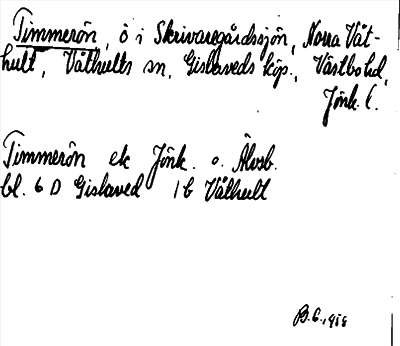 Timmerön, ö i Skrivaregårdssjön, Norra Våt-
hult, Våthults sn, Gislaveds köp., Västbo hd,
Jönk. l.
Timmerön ek Jönk. o. Älvsb.
bl. 6 D Gislaved 1 b Våthult
B.G. 1958